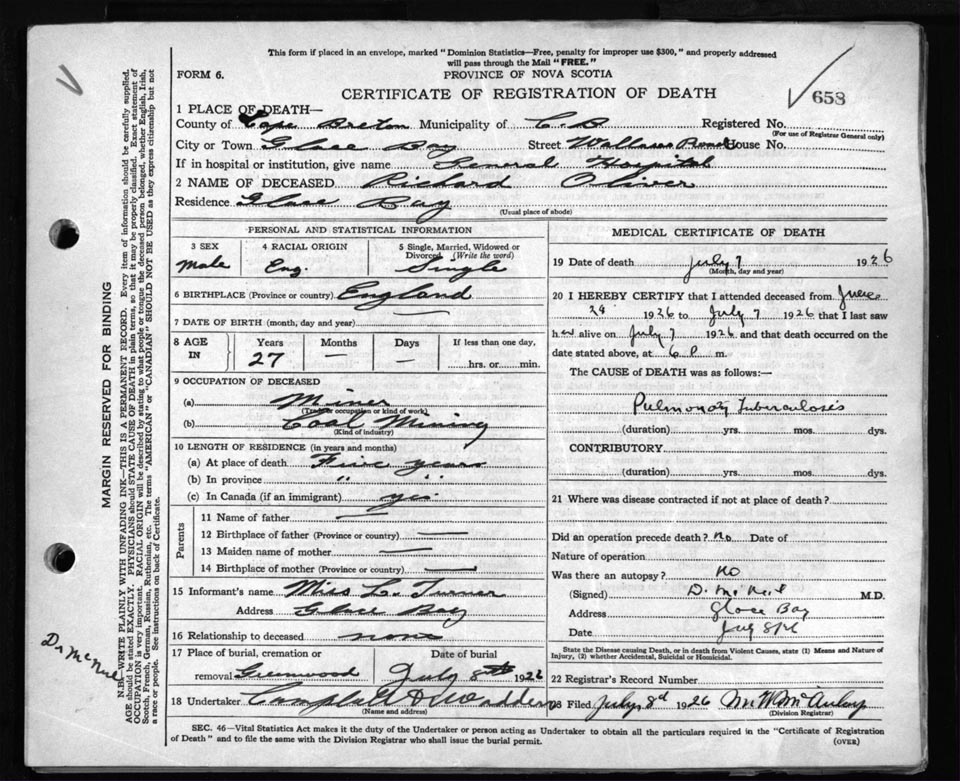 This form if placed in an envelope, marked "Dominion Statistics—Free, penalty for improper use $300," and properly addressed
will pass through the Mail "FREE."
FORM 6.
PROVINCE OF NOVA SCOTIA
CERTIFICATE OF REGISTRATION OF DEATH
658
1 PLACE OF DEATH—
County of Cape Breton Municipality of C.B Registered No.
(For use of Registrar General only)
City or Town Glace Bay Street Wallace Road House No.
If in hospital or institution, give name General Hospital
2 NAME OF DECEASED Richard Oliver
Residence Glace Bay
(Usual place of abode)
PERSONAL AND STATISTICAL INFORMATION
3 SEX 4 RACIAL ORIGIN 5 Single, Married, Widowed or
Divorced (Write the word)
Male Eng. Single
6 BIRTHPLACE (Province or country) England
7 DATE OF BIRTH (month, day and year) —
8 AGE IN Years Months Days If less than one day,
27 — — hrs. or min.
9 OCCUPATION OF DECEASED
(a) Miner
(Trade or occupation or kind of work)
(b) Coal Mining
(Kind of industry)
10 LENGTH OF RESIDENCE (in years and months)
(a) At place of death Five years
(b) In province " "
(c) In Canada (if an immigrant) yes
Parents
11 Name of father —
12 Birthplace of father (Province or country) —
13 Maiden name of mother —
14 Birthplace of mother (Province or country) —
15 Informant's name Miss L. Turner
Address Glace Bay
16 Relationship to deceased none
17 Place of burial, cremation or Date of burial
removal Greenwood July 8th 1926
18 Undertaker
(Name and address)
MEDICAL CERTIFICATE OF DEATH
19 Date of death July 7 1926
(Month, day and year)
20 I HEREBY CERTIFY that I attended deceased from June
28 1926 to July 7 1926 that I last saw
h alive on July 7 1926 and that death occurred on the
date stated above, at 6 P. m.
The CAUSE of DEATH was as follows:—
Pulmonary Tuberculosis
(duration) yrs. mos. dys.
CONTRIBUTORY
(duration) yrs. mos. dys.
21 Where was disease contracted if not at place of death?
Did an operation precede death? no Date of
Nature of operation
Was there an autopsy? no
(Signed) D. McNeil M.D.
Address Glace Bay
Date
State the Disease causing Death, or in death from Violent Causes, state (1) Means and Nature of
Injury, (2) whether Accidental, Suicidal or Homicidal.
22 Registrar's Record Number
Filed July 8d 1926
(Division Registrar)
SEC. 46—Vital Statistics Act makes it the duty of the Undertaker or person acting as Undertaker to obtain all the particulars required in the "Certificate of Registration
of Death" and to file the same with the Division Registrar who shall issue the burial permit.
(OVER)
MARGIN RESERVED FOR BINDING
N.B.—WRITE PLAINLY WITH UNFADING INK—THIS IS A PERMANENT RECORD. Every item of information should be carefully supplied.
AGE should be stated EXACTLY. PHYSICIANS should STATE CAUSE OF DEATH in plain terms, so that it may be properly classified. Exact statement of
OCCUPATION is very important. RACIAL ORIGIN will be described by stating to what people or tongue the deceased person belonged, whether English, Irish,
Scotch, French, German, Russian, Ruthenian, etc. The terms "AMERICAN" or "CANADIAN" SHOULD NOT BE USED as they express citizenship but not
a race or people. See instructions on back of Certificate.